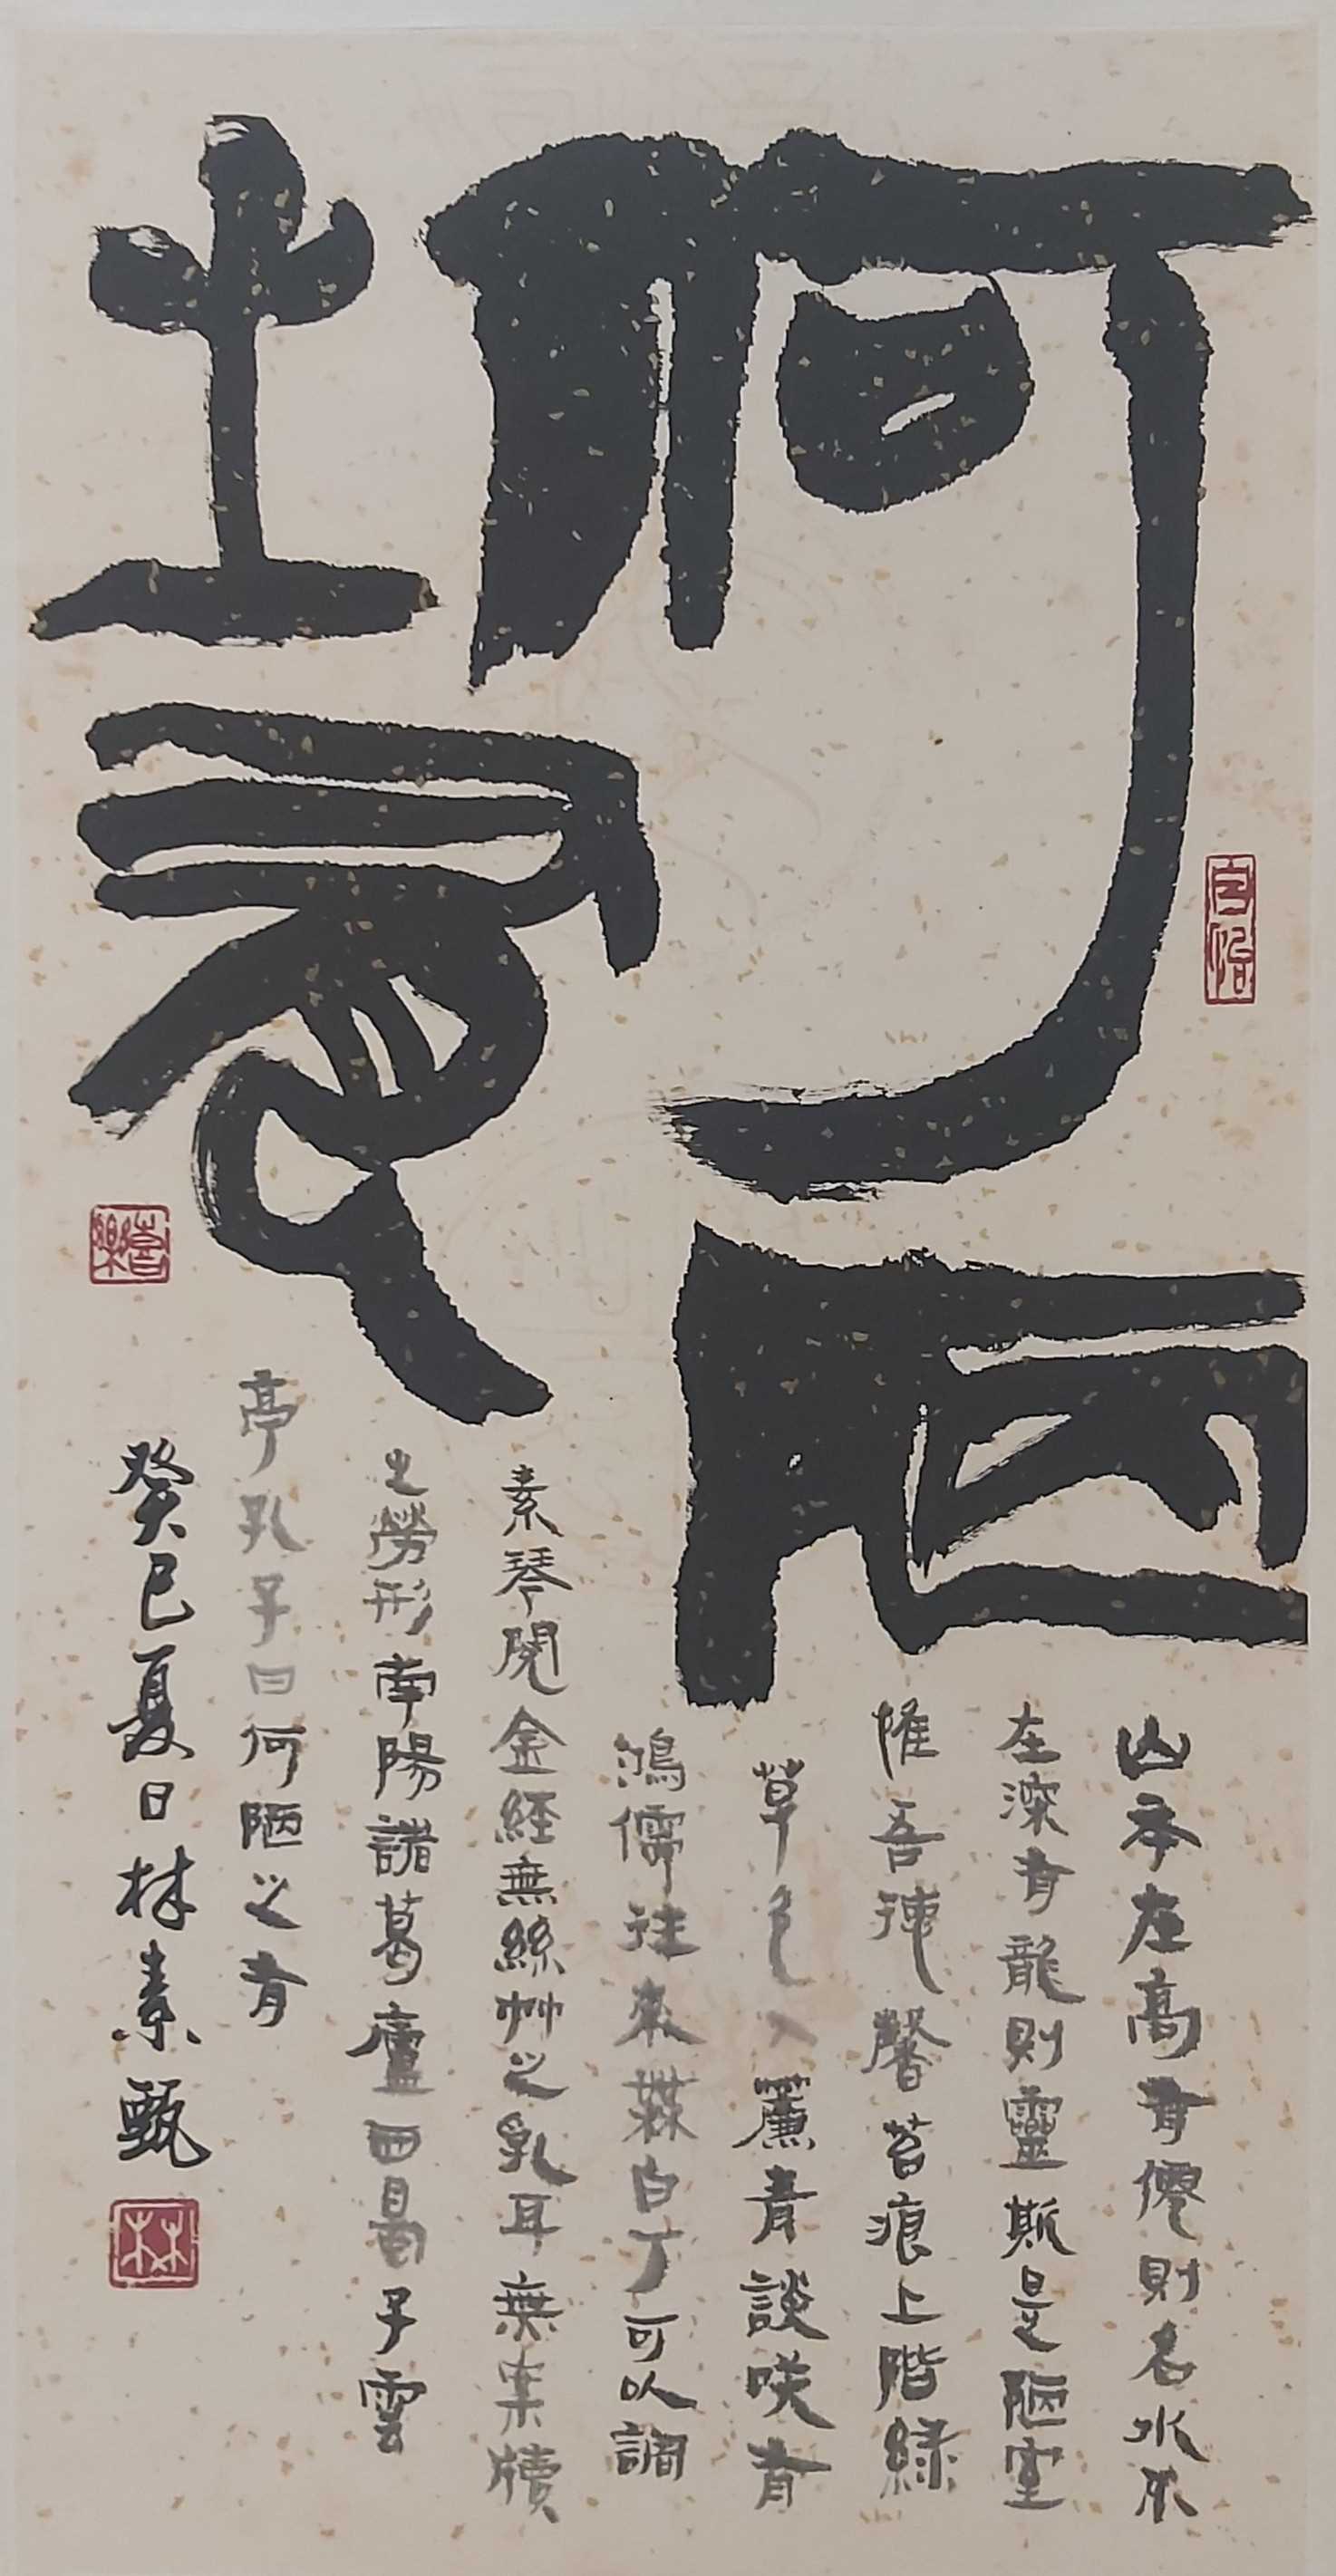 何陋
之有
山不在高有僊則名水不
在深有龍則靈斯是陋室
惟吾德馨苔痕上階綠
草色入簾青談咲有
鴻儒往來無白丁可以調
素琴閱金經無絲竹之亂耳無案牘
之勞形南陽諸葛廬西蜀子雲
亭孔子曰何陋之有
癸巳夏日林素甄
自怡
林